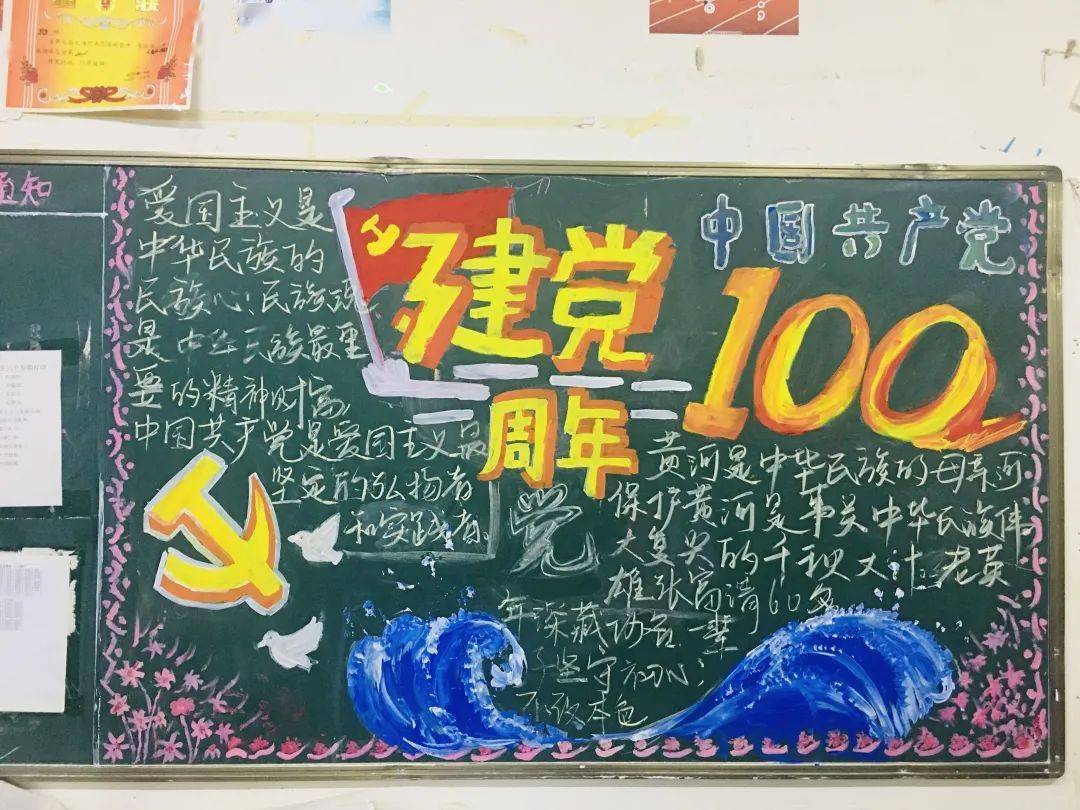 通知
爱国主义是
中华民族的
民族心、民族魂
是中华民族最重
要的精神财富
中国共产党是爱国主义最
坚定的弘扬者
和实践者。
建党
周年
中国共产党
100
党
黄河是中华民族的母亲河
保护黄河是事关中华民族伟
大复兴的千秋大计。老英
雄张富清60多
年深藏功名一辈
子坚守初心、
不改本色